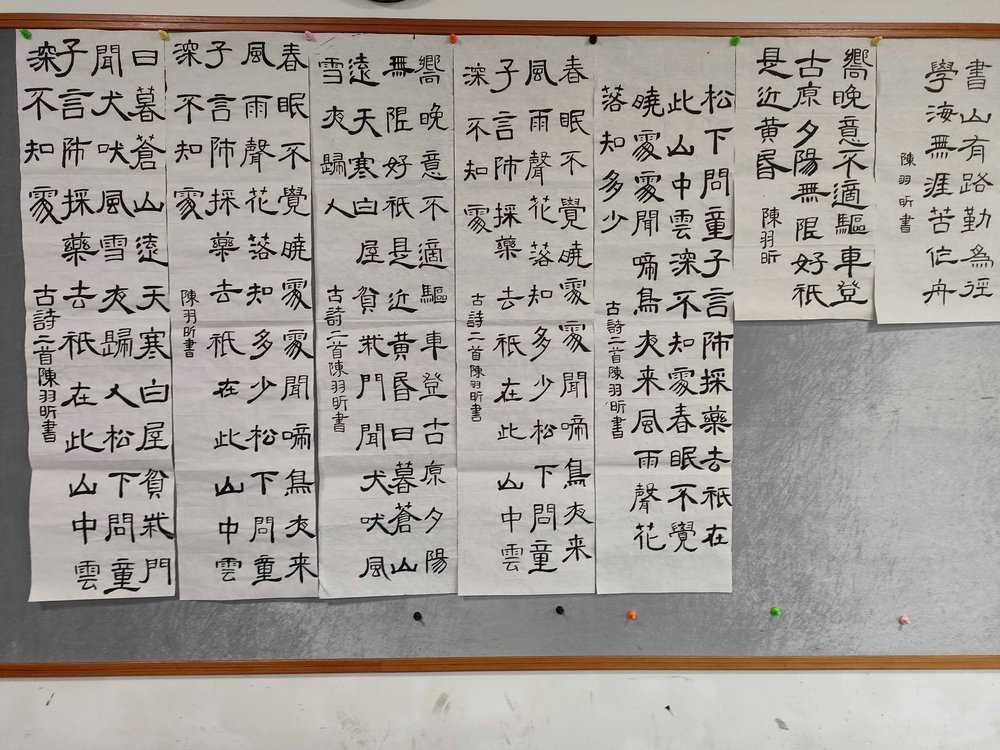 書山有路勤為徑
學海無涯苦作舟
陳羽昕書
嚮晚意不適驅車登
古原夕陽無限好祇
是近黃昏 陳羽昕
松下問童子言師採藥去祇在
此山中雲深不知處春眠不覺
曉處處聞啼鳥夜来風雨聲花
落知多少 古詩二首陳羽昕書
春眠不覺曉處處聞啼鳥夜来
風雨聲花落知多少松下問童
子言師採藥去祇在此山中雲
深不知處 古詩二首陳羽昕書
嚮晚意不適驅車登古原夕陽
無限好祇是近黃昏日暮蒼山
遠天寒白屋貧柴門聞犬吠風
雪夜歸人 古詩二首陳羽昕書
春眠不覺曉處處聞啼鳥夜来
風雨聲花落知多少松下問童
子言師採藥去祇在此山中雲
深不知處 陳羽昕書
日暮蒼山遠天寒白屋貧柴門
聞犬吠風雪夜歸人松下問童
子言師採藥去祇在此山中雲
深不知處 古詩二首陳羽昕書